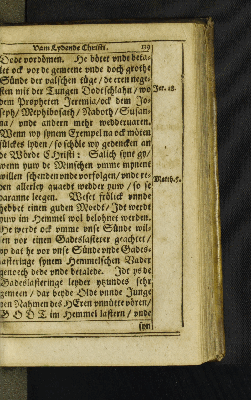 Vam Lydende Christi. 119
Dode vordömen. He bötet vnde beta-
let ock vor de gemeene vnde doch grothe
Sünde der valschen tüge / de eren nege-
sten mit der Tungen Dodtschlahn / wo
dem Propheten Jeremia / ock dem Jo- Jer. 18.
seph / Mephiboseth / Naboth / Susan-
na / vnde andern mehr wedderuaren.
Wenn wy synem Exempel na ock möten
sülckes lyden / so schöle wy gedencken an
de Wörde CHristi: Salich syne gy /
wenn yuw de Minschen vmme mynent
willen schenden vnde vorfolgen / vnde re- Matth. 5.
den allerley quaedt wedder yuw / so se
daranne leegen. Weset frölick vnnde
hebbet einen guden Moedt / Idt werdt
yuw im Hemmel wol belohnet werden.
He werdt ock vmme vnse Sünde wil-
len vor einen Gadeslasterer geachtet /
vp dat he vor vnse Sünde vnde Gades-
lasteringe synem Hemmelschen Vader
genoech dede vnde betalede. Idt ys de
Gadeslasteringe leyder ytzundes sehr
gemeen / dar beyde Olde vnnde Junge
den Nahmen des HEren vnnütte vören /
GODT im Hemmel lastern / vnde
syn